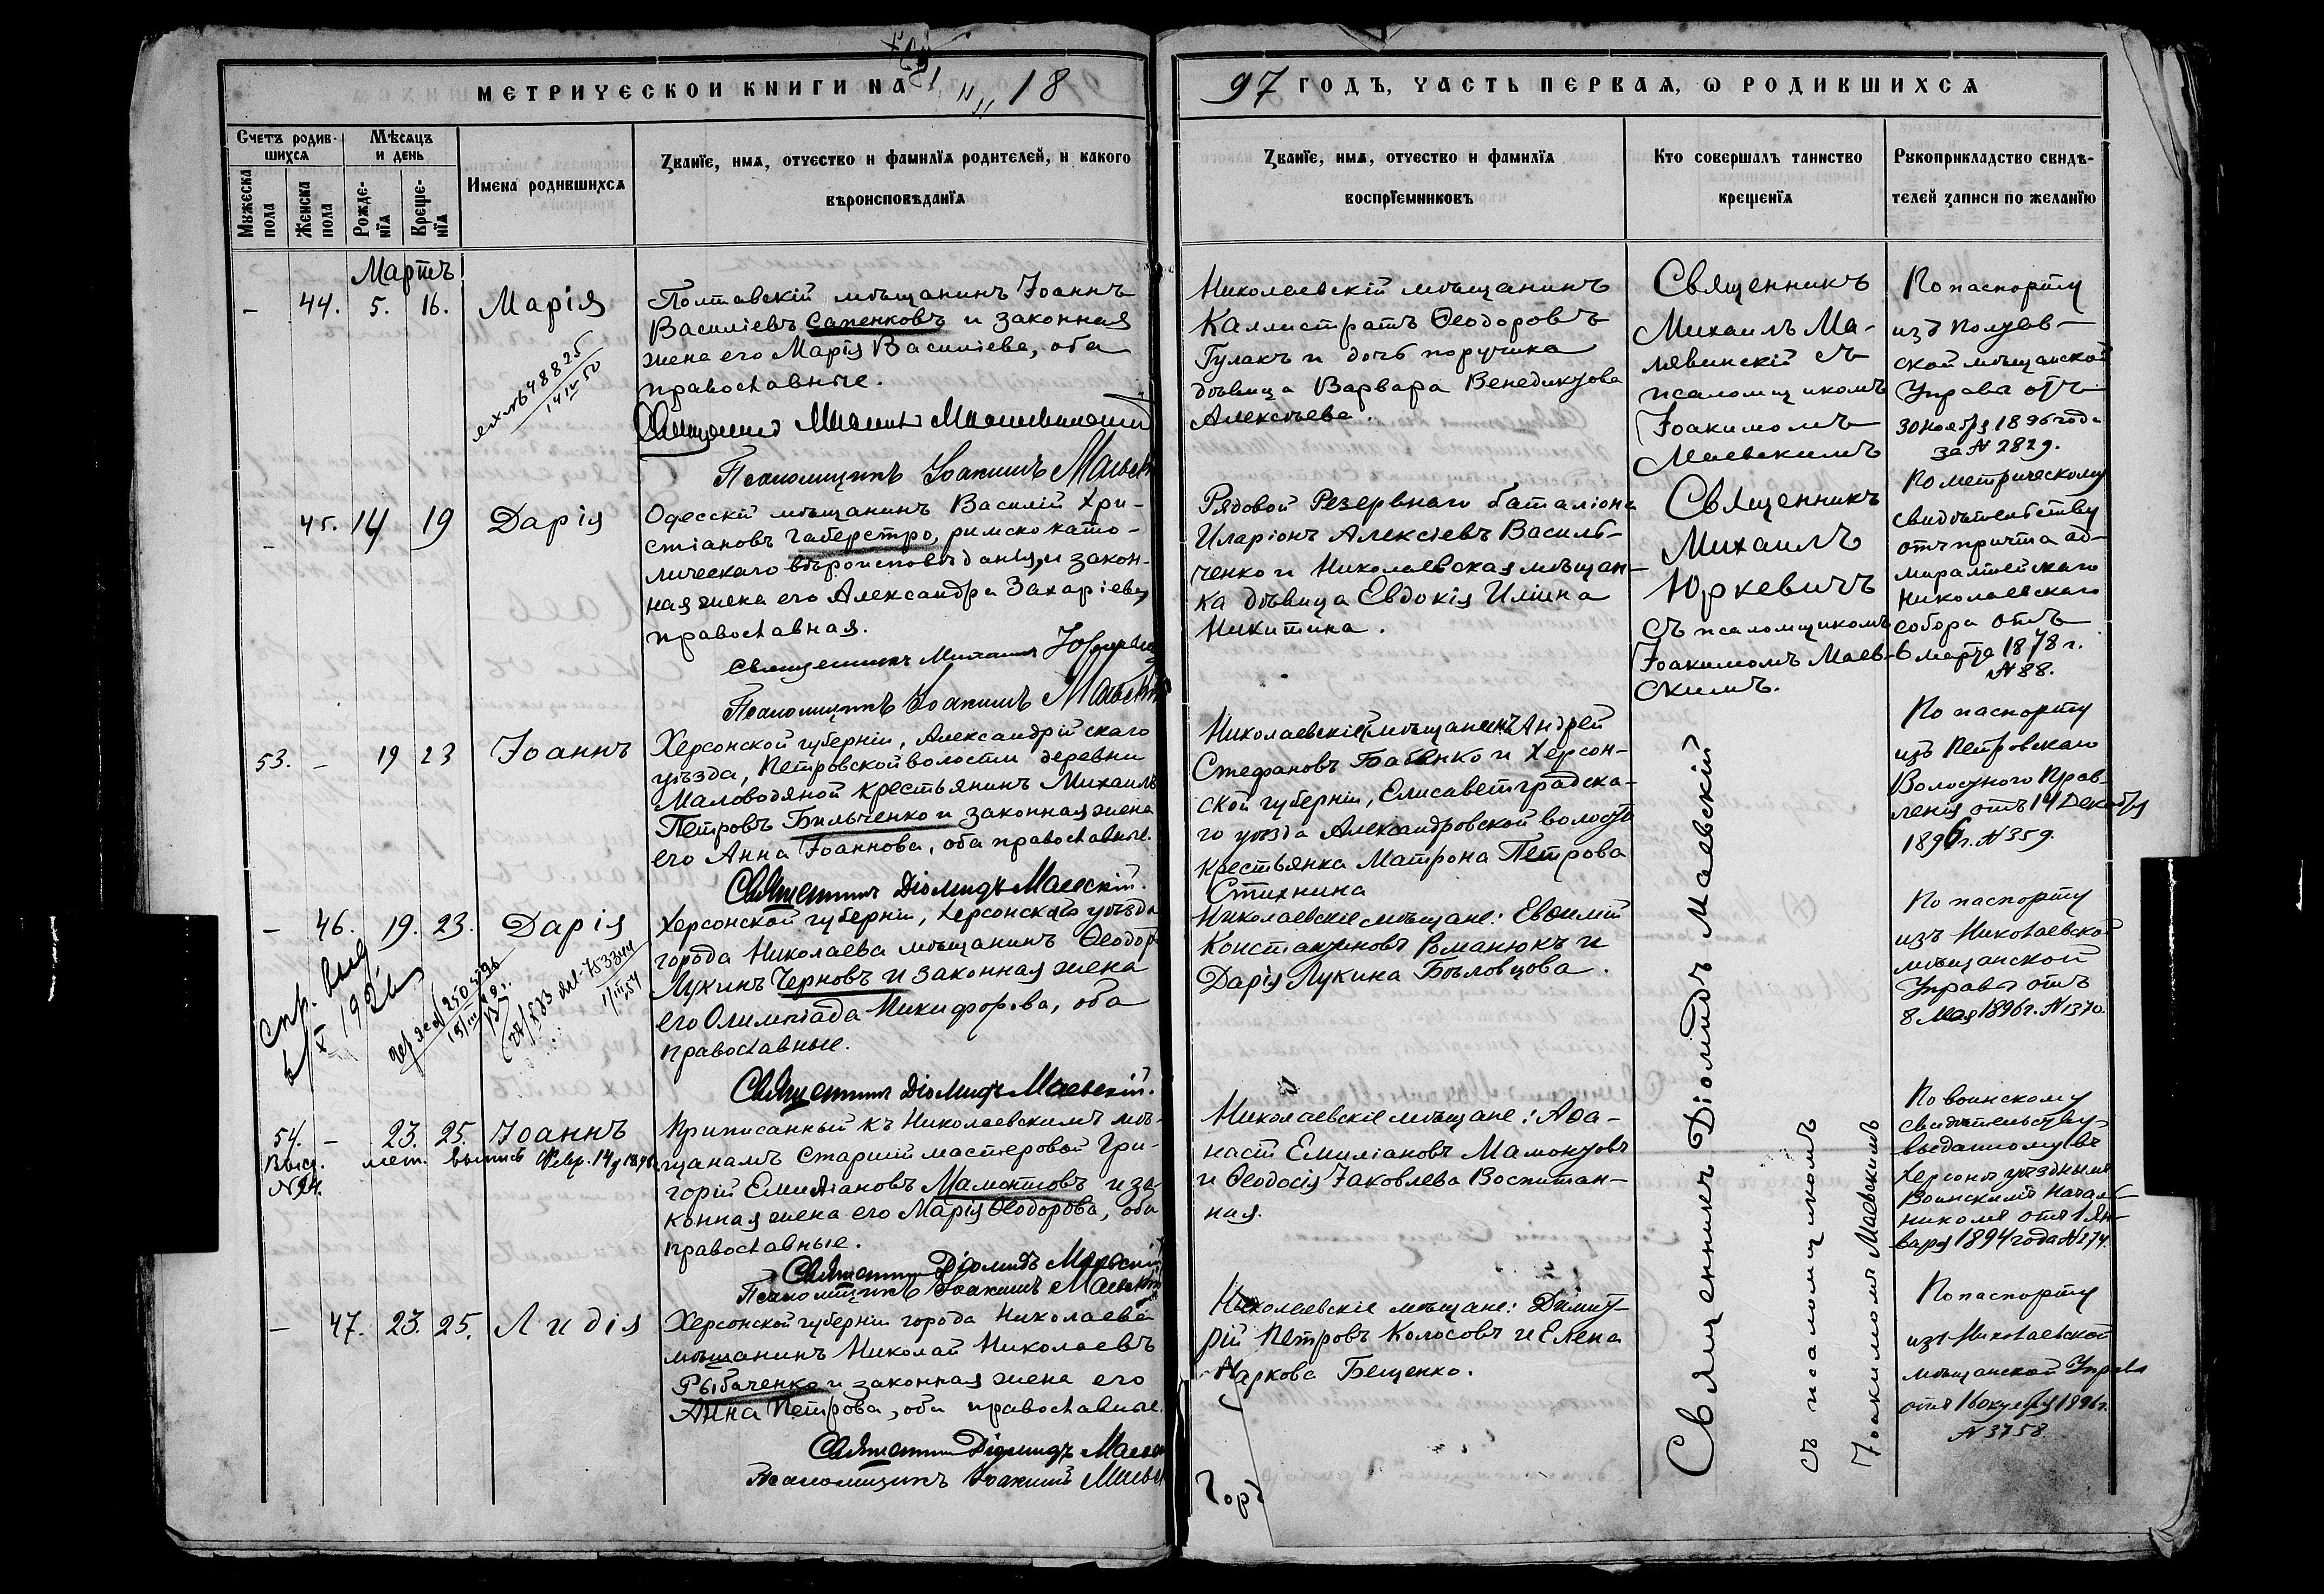 МЕТРИЧЕСКОЙ КНИГИ НА 18
97 ГОДЪ, ЧАСТЬ ПЕРВАЯ, Ѡ РОДИВШИХСЯ
Счетъ родив-
шихся
Мѣсяцъ
и день
Мужеска
пола
Женска
пола
Рожде-
нїя
Креще-
нїя
Имена родившихся
Званїе, имя, отчество и фамилїя родителей, и какого
вѣроисповѣданїя
Званїе, имя, отчество и фамилїя
воспрїемниковъ
Кто совершалъ таинство
крещенїя
Рукоприкладство свидѣ-
телей записи по желанїю
Мартъ
– 44. 5. 16. Марія
Полтавскій мѣщанинъ Іоаннъ
Василіевъ Сапенковъ и законная
жена его Марія Василіева, оба
православные.
Священникъ Михаилъ
Псаломщикъ Іоакимъ Маевск
Николаевскій мѣщанинъ
Каллистратъ Ѳеодоровъ
Гулакъ и дочь поручика
дѣвица Варвара Венедиктова
Алексѣева.
Священникъ
Михаилъ Ма-
лявинскій съ
псаломщикомъ
Іоакимомъ
Маевскимъ
По паспорту
изъ Полтав-
ской мѣщанской
Управы отъ
30 ноября 1896 года
за № 2829.
– 45. 14 19 Дарія
Одесскій мѣщанинъ Василій Хри-
стіановъ Габерстро, римско като-
лическаго вѣроисповѣданія, и закон-
ная жена его Александра Захаріева,
православная.
Священникъ Михаилъ Юркевичъ
Псаломщикъ Іоакимъ Маевск
Рядовой Резервнаго баталіона
Иларіонъ Алексіевъ Василь-
ченко и Николаевская мѣщан-
ка дѣвица Евдокія Иліина
Никитина.
Священникъ
Михаилъ
Юркевичъ
съ псаломщикомъ
Іоакимомъ Маев-
скимъ.
По метрическому
свидѣтельству
отъ причта ад-
миралтейскаго
Николаевскаго
собора отъ
6 марта 1878 г.
№ 88.
53. – 19 23 Іоаннъ
Херсонской губерніи, Александрійскаго
уѣзда, Петровской волости деревни
Маловодяной крестьянинъ Михаилъ
Петровъ Бильченко и законная жена
его Анна Іоаннова, оба православные.
Священникъ Діомидъ Маевскій.
Николаевскій мѣщанинъ Андрей
Стефановъ Бабенко и Херсон-
ской губерніи, Елисаветградска-
го уѣзда Александровской волости
крестьянка Матрона Петрова
Стихнина
По паспорту
изъ Петровскаго
Волостного Прав-
ленія отъ 14 Декабря
1896 г. № 359.
– 46. 19. 23. Дарія
Херсонской губерніи, Херсонскаго уѣзда
города Николаева мѣщанинъ Ѳеодоръ
Лукинъ Черновъ и законная жена
его Олимпіада Никифорова, оба
православные.
Священникъ Діомидъ Маевскій.
Николаевскіе мѣщане: Евѳимій
Константиновъ Романюкъ и
Дарія Лукина Бѣловцова.
По паспорту
изъ Николаевской
мѣщанской
Управы отъ
8 Мая 1896 г. № 1370.
54. – 23. 25. Іоаннъ
Приписанный къ Николаевскимъ мѣ-
щанамъ Старшій мастеровой Гри-
горій Емиліановъ Мамонтовъ и за-
конная жена его Марія Ѳеодорова, оба
православные.
Священникъ Діомидъ Маевскій
Псаломщикъ Іоакимъ Маевскій
Николаевскіе мѣщане: Аѳа-
насій Емиліановъ Мамонтовъ
и Ѳеодосія Іаковлева Воспитан-
ная.
По воинскому
свидѣтельству
выданному въ
Херсонѣ уѣзднымъ
Воинскимъ Началь-
никомъ отъ 1 Ян-
варя 1894 года № 274.
– 47. 23. 25. Лидія
Херсонской губерніи города Николаева
мѣщанинъ Николай Николаевъ
Рыбаченко и законная жена его
Анна Петрова, оба православные.
Священникъ Діомидъ Маевск
Псаломщикъ Іоакимъ Маевск
Николаевскіе мѣщане: Димит-
рій Петровъ Колосовъ и Елена
Маркова Бещенко.
По паспорту
изъ Николаевской
мѣщанской Управы
отъ 16 октября 1896 г.
№ 3758.
Священникъ Діомидъ Маевскій
съ псаломщикомъ
Іоакимомъ Маевскимъ